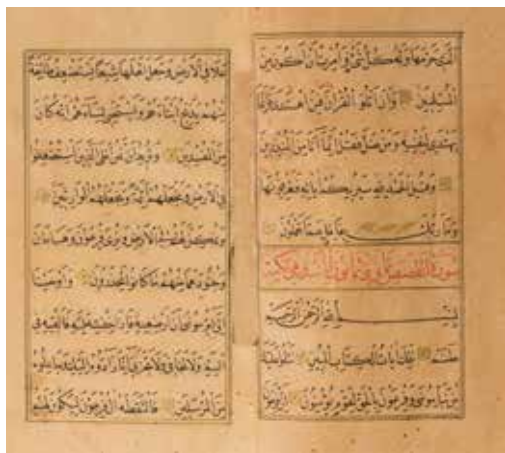 الذي حرمها وله كل شيء وأمرت أن أكون من
المسلمين وأن أتلو القرآن فمن اهتدى فإنما
يهتدي لنفسه ومن ضل فقل إنما أنا من المنذرين
وقل الحمد لله سيريكم آياته فتعرفونها
وما ربك بغافل عما تعملون
سورة القصص وهي ثمانون آية وهي مكية
بسم الله الرحمن الرحيم
طسم تلك آيات الكتاب المبين نتلو عليك
من نبإ موسى وفرعون بالحق لقوم يؤمنون إن فرعون
علا في الأرض وجعل أهلها شيعا يستضعف طائفة
منهم يذبح أبناءهم ويستحيي نساءهم إنه كان
من المفسدين ونريد أن نمن على الذين استضعفوا
في الأرض ونجعلهم أئمة ونجعلهم الوارثين
ونمكن لهم في الأرض ونري فرعون وهامان
وجنودهما منهم ما كانوا يحذرون وأوحينا
إلى أم موسى أن أرضعيه فإذا خفت عليه فألقيه في
اليم ولا تخافي ولا تحزني إنا رادوه إليك وجاعلوه
من المرسلين فالتقطه آل فرعون ليكون لهم